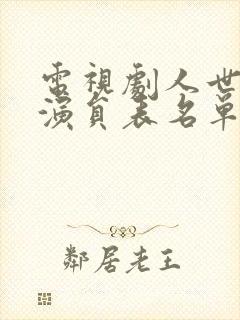 電視劇人世
演員表名單
鄰居老王